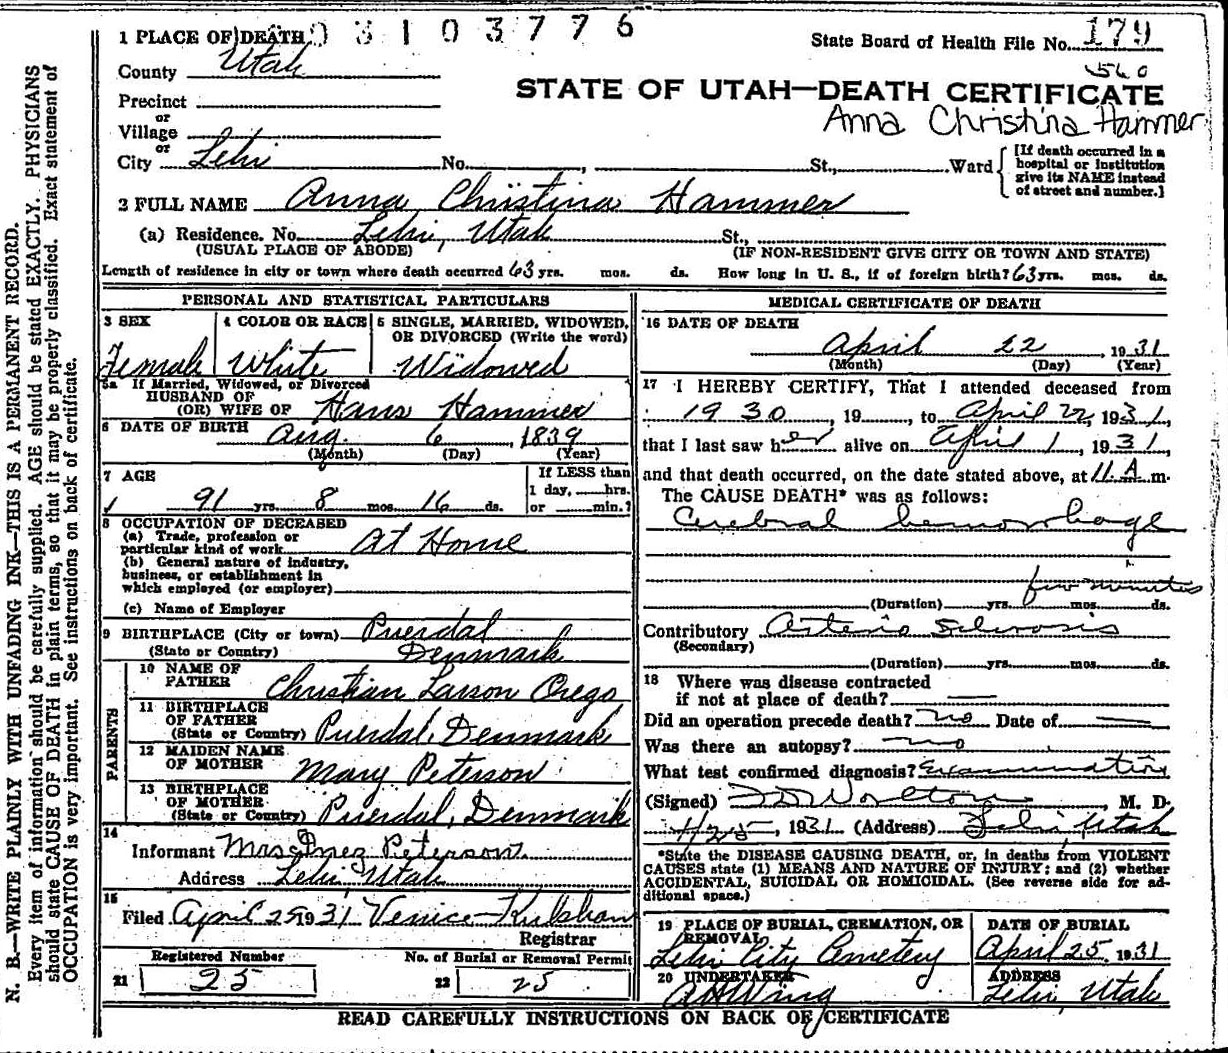 N. B.—WRITE PLAINLY WITH UNFADING INK—THIS IS A PERMANENT RECORD.
Every item of information should be carefully supplied. AGE should be stated EXACTLY. PHYSICIANS
should state CAUSE OF DEATH in plain terms, so that it may be properly classified. Exact statement of
OCCUPATION is very important. See instructions on back of certificate.
1 PLACE OF DEATH 03103776
State Board of Health File No. 179
560
County Utah
STATE OF UTAH—DEATH CERTIFICATE
Anna Christina Hammer
Precinct
or
Village
or
City Lehi No. , St., Ward
[If death occurred in a
hospital or institution
give its NAME instead
of street and number.]
2 FULL NAME Anna Christina Hammer
(a) Residence. No. Lehi, Utah St.,
(USUAL PLACE OF ABODE) (IF NON-RESIDENT GIVE CITY OR TOWN AND STATE)
Length of residence in city or town where death occurred 63 yrs. mos. ds. How long in U. S., if of foreign birth? 63 yrs. mos. ds.
PERSONAL AND STATISTICAL PARTICULARS
3 SEX 4 COLOR OR RACE 5 SINGLE, MARRIED, WIDOWED,
OR DIVORCED (Write the word)
Female White Widowed
5a If Married, Widowed, or Divorced
HUSBAND OF
(OR) WIFE OF Hans Hammer
6 DATE OF BIRTH Aug. 6, 1839
(Month) (Day) (Year)
7 AGE If LESS than
1 day, hrs.
91 yrs. 8 mos. 16 ds. or min.?
8 OCCUPATION OF DECEASED
(a) Trade, profession or
particular kind of work At Home
(b) General nature of industry,
business, or establishment in
which employed (or employer)
(c) Name of Employer
9 BIRTHPLACE (City or town) Puerdal
(State or Country) Denmark
PARENTS
10 NAME OF
FATHER Christian Larson Orego
11 BIRTHPLACE
OF FATHER
(State or Country) Puerdal, Denmark
12 MAIDEN NAME
OF MOTHER Mary Peterson
13 BIRTHPLACE
OF MOTHER
(State or Country) Puerdal, Denmark
14
Informant Mrs Inez Peterson
Address Lehi, Utah
15
Filed April 25 1931 Venice
Registrar
Registered Number No. of Burial or Removal Permit
21 25 22 25
MEDICAL CERTIFICATE OF DEATH
16 DATE OF DEATH
April 22, 1931
(Month) (Day) (Year)
17 I HEREBY CERTIFY, That I attended deceased from
1930, 19, to April 22, 1931,
that I last saw her alive on April 1, 1931,
and that death occurred, on the date stated above, at 11 A m.
The CAUSE DEATH* was as follows:
Cerebral hemorrhage
few minutes
(Duration) yrs. mos. ds.
Contributory Arterio Sclerosis
(Secondary)
(Duration) yrs. mos. ds.
18 Where was disease contracted
if not at place of death?
Did an operation precede death? no Date of
Was there an autopsy? no
What test confirmed diagnosis? Examination
(Signed) Worlton, M. D.
4/25, 1931 (Address) Lehi Utah
*State the DISEASE CAUSING DEATH, or, in deaths from VIOLENT
CAUSES state (1) MEANS AND NATURE OF INJURY; and (2) whether
ACCIDENTAL, SUICIDAL OR HOMICIDAL. (See reverse side for ad-
ditional space.)
19 PLACE OF BURIAL, CREMATION, OR DATE OF BURIAL
REMOVAL
Lehi City Cemetery April 25 1931
20 UNDERTAKER ADDRESS
A H Wing Lehi, Utah
READ CAREFULLY INSTRUCTIONS ON BACK OF CERTIFICATE